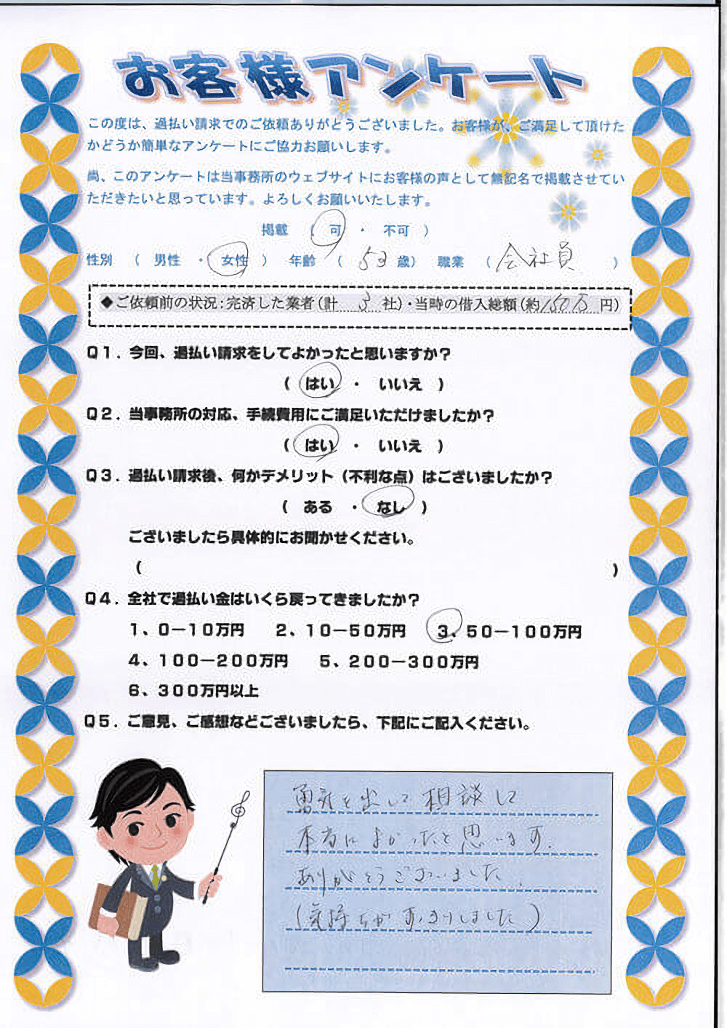 お客様アンケート
この度は、過払い請求でのご依頼ありがとうございました。お客様が、ご満足して頂けた
かどうか簡単なアンケートにご協力お願いします。
尚、このアンケートは当事務所のウェブサイトにお客様の声として無記名で掲載させてい
ただきたいと思っています。よろしくお願いいたします。
掲載 ( 可 ・ 不可 )
性別 ( 男性 ・ 女性 ) 年齢 ( 53 歳) 職業 ( 会社員 )
◆ご依頼前の状況:完済した業者(計 3 社)・当時の借入総額(約 150万 円)
Q1. 今回、過払い請求をしてよかったと思いますか?
( はい ・ いいえ )
Q2. 当事務所の対応、手続費用にご満足いただけましたか?
( はい ・ いいえ )
Q3. 過払い請求後、何かデメリット(不利な点)はございましたか?
( ある ・ なし )
ございましたら具体的にお聞かせください。
( )
Q4. 全社で過払い金はいくら戻ってきましたか?
1、0-10万円 2、10-50万円 3、50-100万円
4、100-200万円 5、200-300万円
6、300万円以上
Q5. ご意見、ご感想などございましたら、下記にご記入ください。
勇気を出して相談して
本当によかったと思います。
ありがとうございました。
(気持ちがすっきりしました)